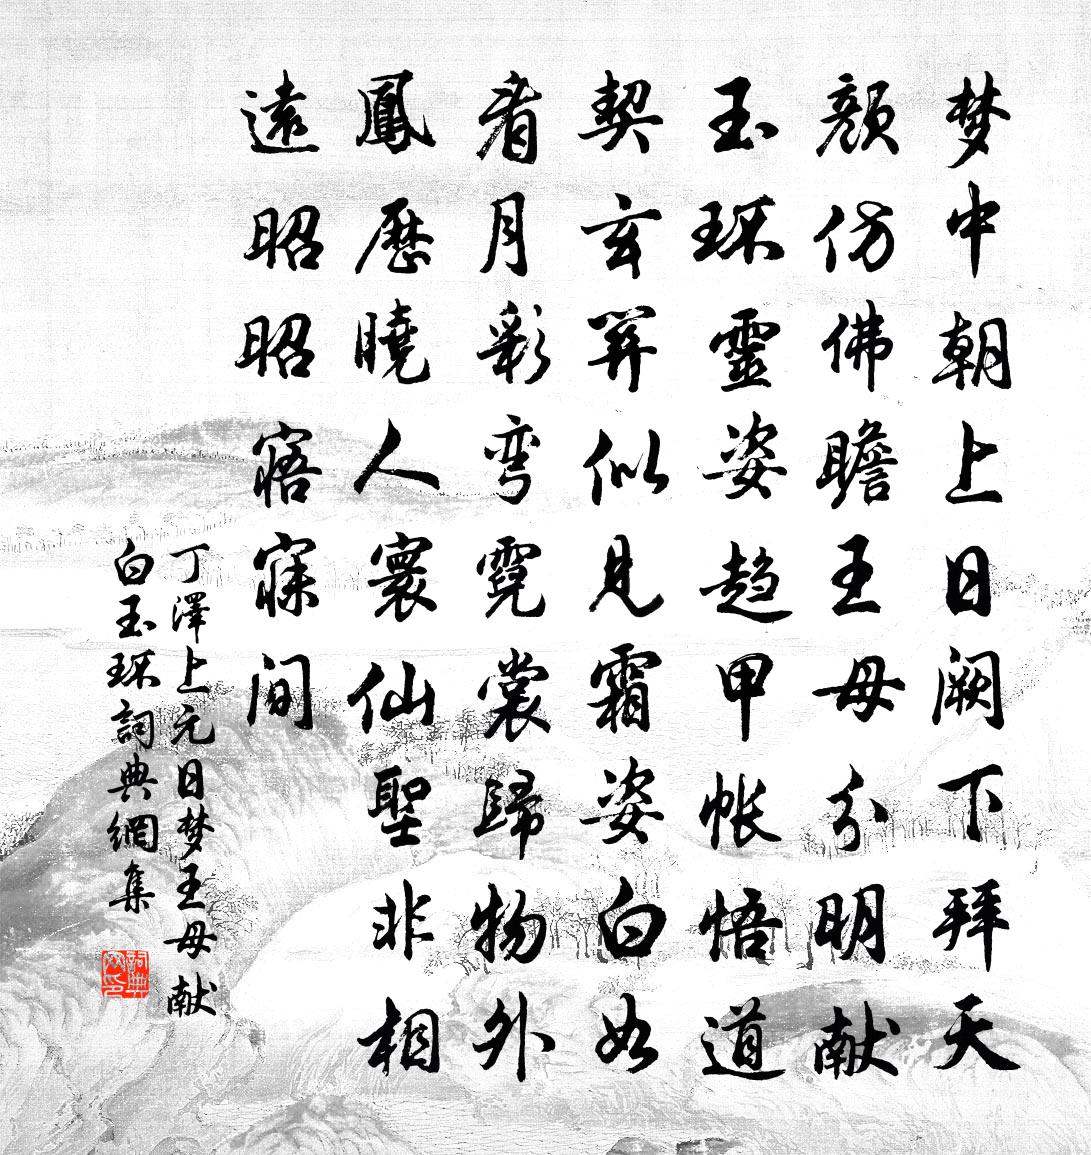 梦中朝上日闕下拜天
顏仿佛瞻王母分明献
玉环靈姿趋甲帐悟道
契玄关似見霜姿白如
看月彩弯霓裳歸物外
鳳歷曉人寰仙聖非相
遠昭昭寤寐间
丁澤上元日梦王母献
白玉环詞典網集
詞典
网印